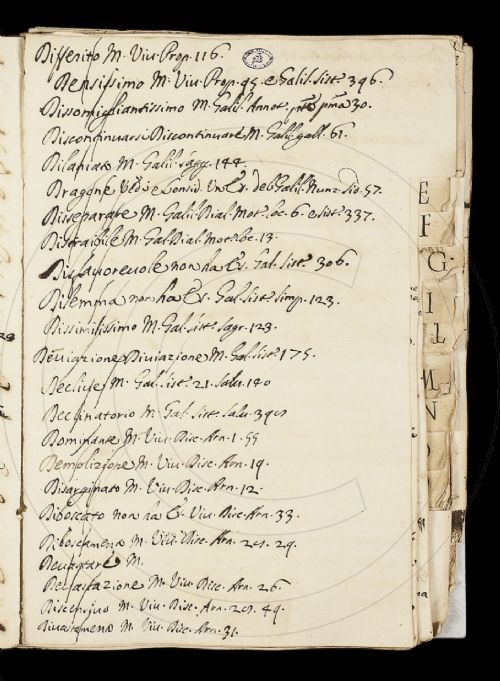 Differito M. Viv. Prop. 116.
Densissimo M. Viv. Prop. 95. e Galil. Sist. 396.
Dissomigliantissimo M. Galil. Annot. pma 30.
Discontinuarsi Discontinuare M. Galil. gall. 61.
Dilaniato M. Galil. sagg. 144.
Dragone Ved. e Consid. Un Es. del Galil. Nunz. Sid. 57.
Disseparare M. Galil. Dial. Mot. loc. 6. e sist. 337.
Distraibile M. Gal. Dial. Mot. loc. 13.
Disfavorevole non ha Es. Gal. sist. 306.
Dilemma non ha Es. Gal. sist. simp. 123.
Dissimilissimo M. Gal. sist. sagr. 123.
Deviazione Diviazione M. Gal. sist. 175.
Declive M. Gal. sist. 21. salv. 140
Declinatorio M. Gal. sist. salv.
Dominante M. Viv. Disc. Arn. 1. 55
Demolizione M. Viv. Disc. Arn. 19.
Disarginato M. Viv. Disc. Arn. 12.
Diboscato non ha Es. Viv. Disc. Arn. 33.
Diboscamento M. Viv. Disc. Arn. 29.
Devastare M.
Devastazione M. Viv. Disc. Arn. 26.
M. Viv. Disc. Arn. 49.
M. Viv. Disc. Arn. 31.
E
F
G
I
L
M
N